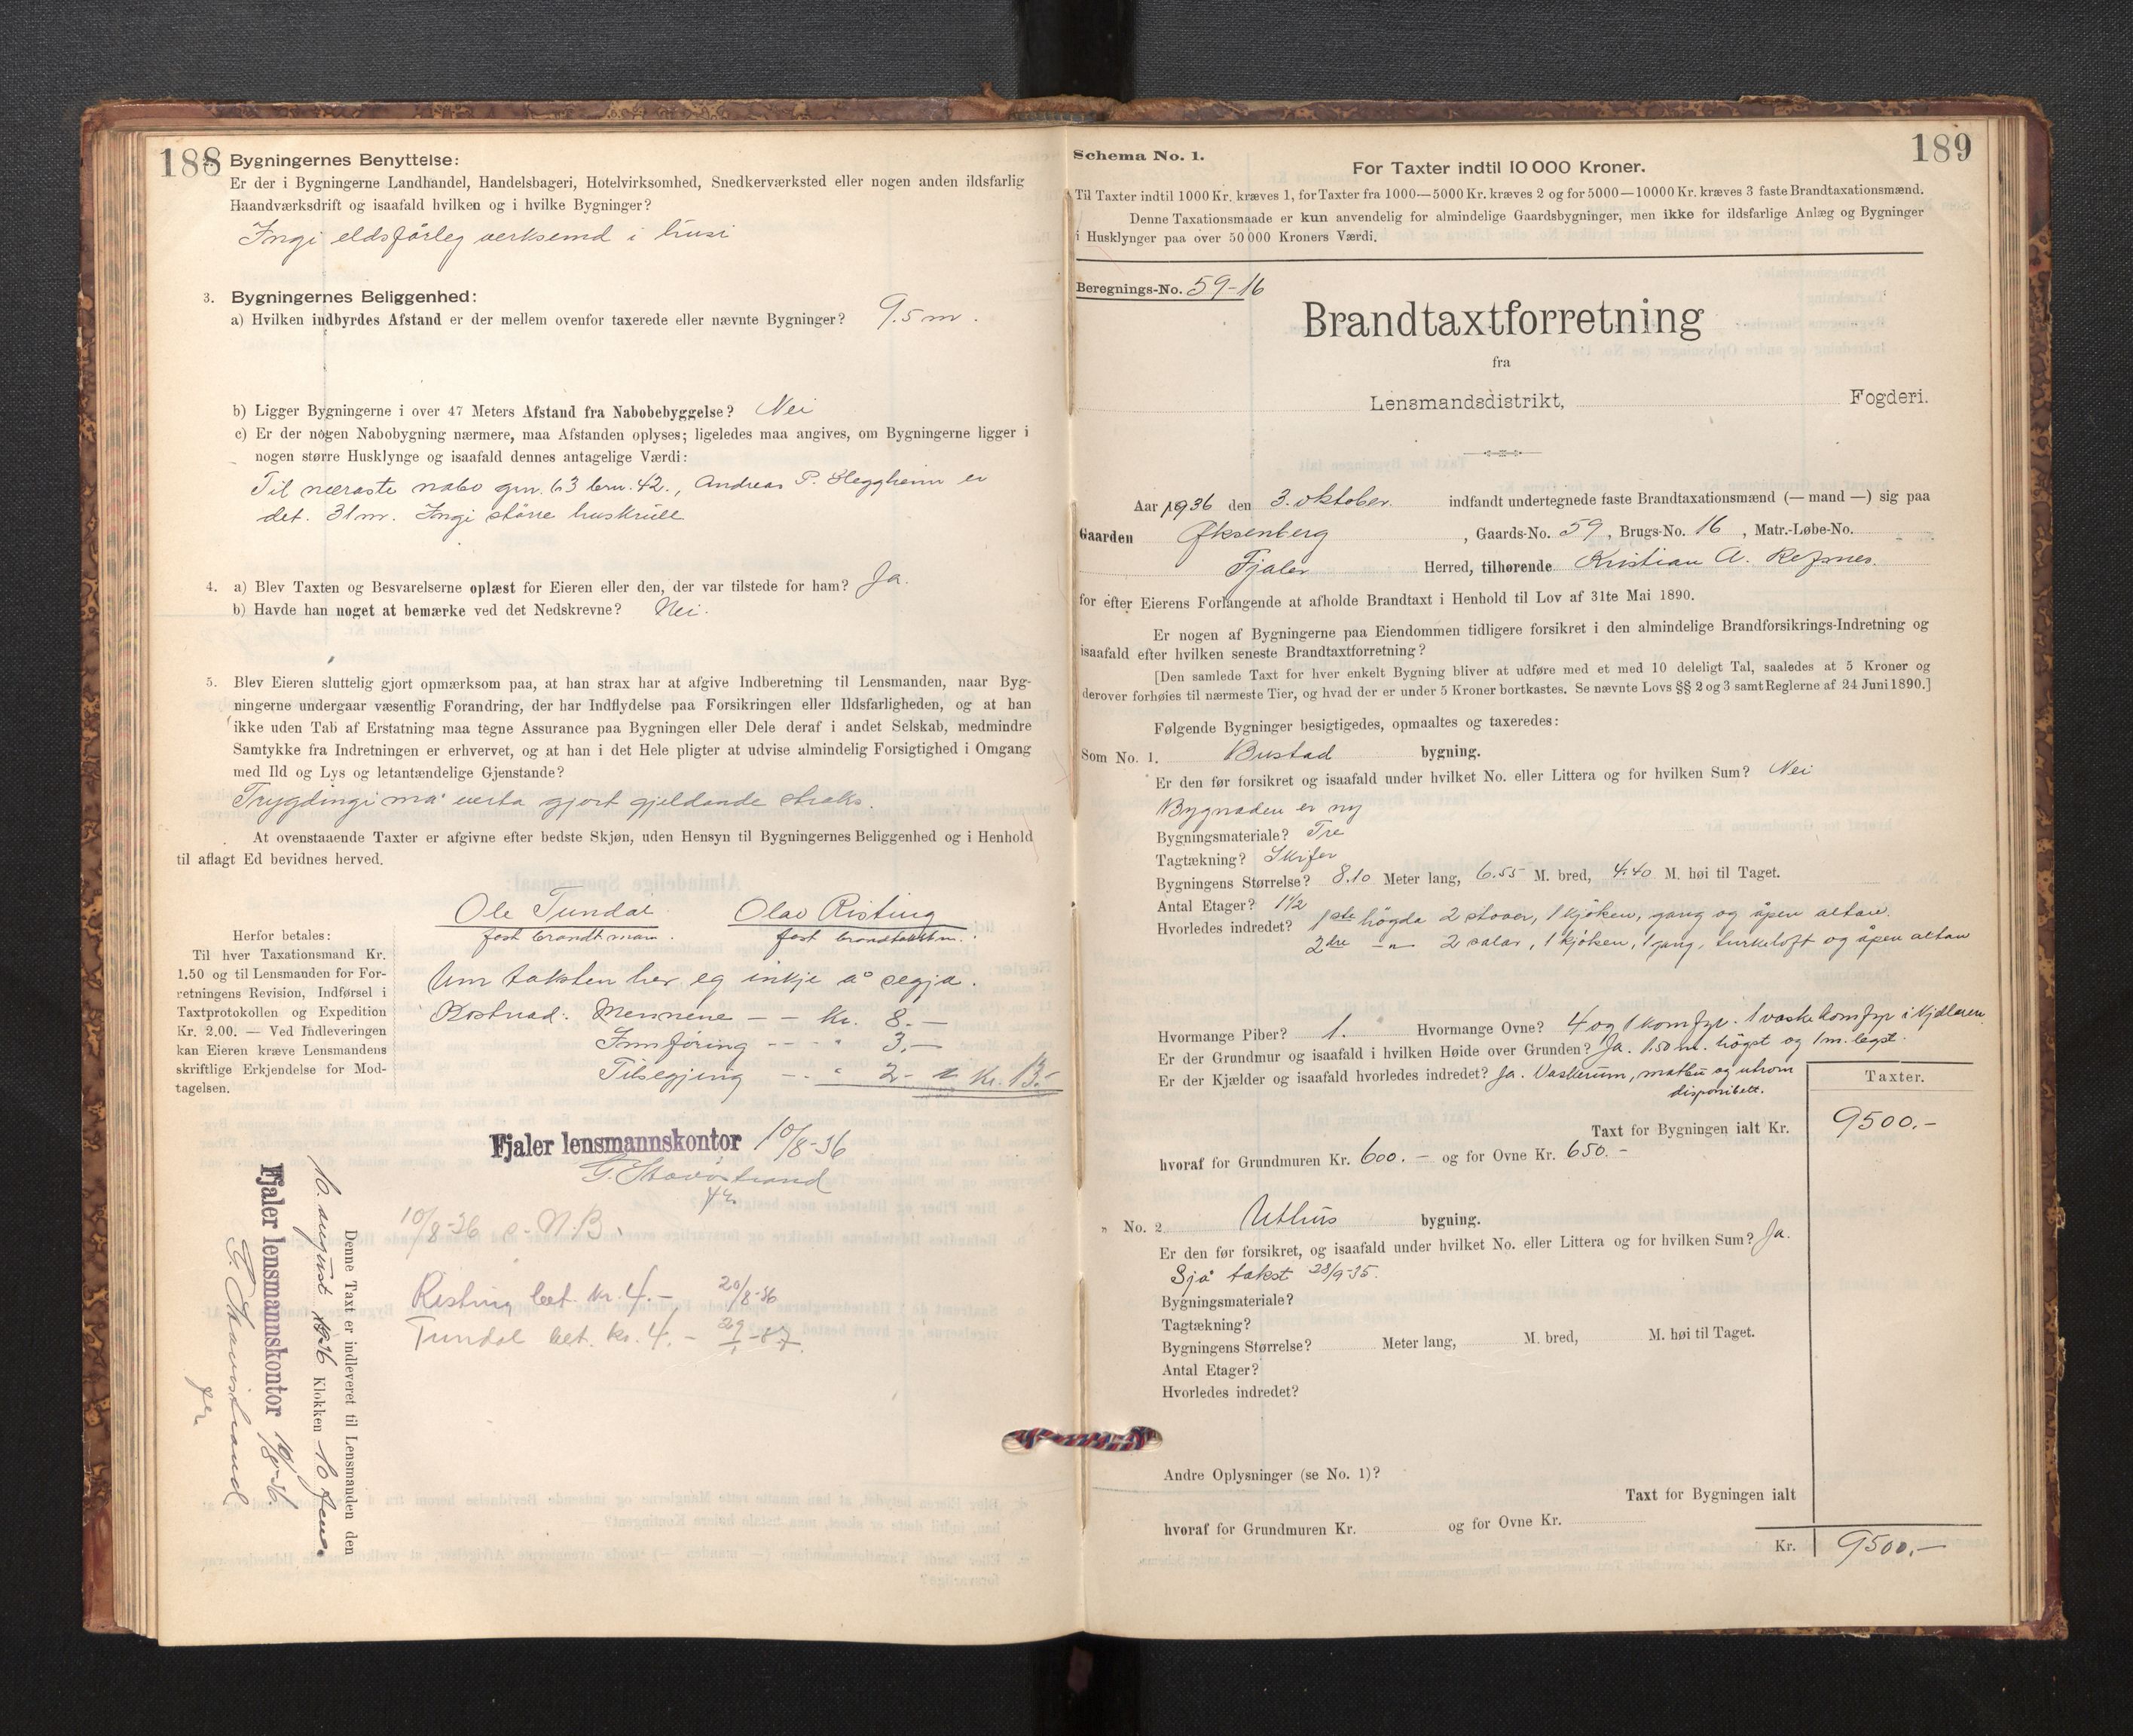 188
2. Bygningernes Benyttelse:
Er der i Bygningerne Landhandel, Handelsbageri, Hotelvirksomhed, Snedkerværksted eller nogen anden ildsfarlig
Haandværksdrift og isaafald hvilken og i hvilke Bygninger?
Ingi eldsfårleg verksemd i husi
3. Bygningernes Beliggenhed:
a) Hvilken indbyrdes Afstand er der mellem ovenfor taxerede eller nævnte Bygninger? 9.5 m.
b) Ligger Bygningerne i over 47 Meters Afstand fra Nabobebyggelse? Nei
c) Er der nogen Nabobygning nærmere, maa Afstanden oplyses; ligeledes maa angives, om Bygningerne ligger i
nogen større Husklynge og isaafald dennes antagelige Værdi:
Til næraste nabo grn. 63 brn. 42., Andreas P. Heggheim er
det. 31 m. Ingi större huskrull
4. a) Blev Taxten og Besvarelserne oplæst for Eieren eller den, der var tilstede for ham? Ja.
b) Havde han noget at bemærke ved det Nedskrevne? Nei.
5. Blev Eieren sluttelig gjort opmærksom paa, at han strax har at afgive Indberetning til Lensmanden, naar Byg-
ningerne undergaar væsentlig Forandring, der har Indflydelse paa Forsikringen eller Ildsfarligheden, og at han
ikke uden Tab af Erstatning maa tegne Assurance paa Bygningen eller Dele deraf i andet Selskab, medmindre
Samtykke fra Indretningen er erhvervet, og at han i det Hele pligter at udvise almindelig Forsigtighed i Omgang
med Ild og Lys og letantændelige Gjenstande?
Trygdingi må verta gjort gjeldande straks.
At ovenstaaende Taxter er afgivne efter bedste Skjøn, uden Hensyn til Bygningernes Beliggenhed og i Henhold
til aflagt Ed bevidnes herved.
Ole Tundal Olav Risting
fast brandtmann. fast brandtakstm.
Herfor betales:
Til hver Taxationsmand Kr.
1.50 og til Lensmanden for For-
retningens Revision, Indførsel i
Taxtprotokollen og Expedition
Kr. 2.00. — Ved Indleveringen
kan Eieren kræve Lensmandens
skriftlige Erkjendelse for Mod-
tagelsen.
Um taksten her eg inkje å segja.
Kostnad: Mennene - - Kr. 8.-
Innføring - - - " 3.-
Tilsegjing - - " 2.- Kr. 13.-
Fjaler lensmannskontor 10/8-36
10/8-36 s. N.B.
Risting bet. kr. 4.- 20/8-36
Tundal bet. kr. 4.- 29/1-37
Denne Taxt er indleveret til Lensmanden den
10. august 1936 Klokken 10 fm.
Fjaler lensmannskontor 10/8-36
189
Schema No. 1.
For Taxter indtil 10 000 Kroner.
Til Taxter indtil 1000 Kr. kræves 1, for Taxter fra 1000—5000 Kr. kræves 2 og for 5000—10000 Kr. kræves 3 faste Brandtaxationsmænd.
Denne Taxationsmaade er kun anvendelig for almindelige Gaardsbygninger, men ikke for ildsfarlige Anlæg og Bygninger
i Husklynger paa over 50 000 Kroners Værdi.
Beregnings-No. 59-16
Brandtaxtforretning
fra
Lensmandsdistrikt, Fogderi.
Aar 1936 den 3. oktober. indfandt undertegnede faste Brandtaxationsmænd (— mand —) sig paa
Gaarden Øksenberg, Gaards-No. 59, Brugs-No. 16, Matr.-Løbe-No.
Fjaler Herred, tilhørende Kristian A. Refsnes.
for efter Eierens Forlangende at afholde Brandtaxt i Henhold til Lov af 31te Mai 1890.
Er nogen af Bygningerne paa Eiendommen tidligere forsikret i den almindelige Brandforsikrings-Indretning og
isaafald efter hvilken seneste Brandtaxtforretning?
[Den samlede Taxt for hver enkelt Bygning bliver at udføre med et med 10 deleligt Tal, saaledes at 5 Kroner og
derover forhøies til nærmeste Tier, og hvad der er under 5 Kroner bortkastes. Se nævnte Lovs §§ 2 og 3 samt Reglerne af 24 Juni 1890.]
Følgende Bygninger besigtigedes, opmaaltes og taxeredes:
Som No. 1. Bustad bygning.
Er den før forsikret og isaafald under hvilket No. eller Littera og for hvilken Sum? Nei
Bygnaden er ny
Bygningsmateriale? Tre
Tagtækning? Skifer
Bygningens Størrelse? 8.10 Meter lang, 6.55 M. bred, 4.40 M. høi til Taget.
Antal Etager? 1½
Hvorledes indredet? 1ste högda 2 stover, 1 kjöken, gang og åpen altan.
2dre -"- 2 salar, 1 kjöken, 1 gang, turkeloft og åpen altan
Hvormange Piber? 1. Hvormange Ovne? 4 og 1 komfyr. 1 vaskekomfyr i kjellaren.
Er der Grundmur og isaafald i hvilken Høide over Grunden? Ja. 1.50 m. högst og 1 m. legst.
Er der Kjælder og isaafald hvorledes indredet? Ja. Vaskerum, matbu og uthrom
disponibelt.
Taxter.
Taxt for Bygningen ialt Kr. 9500.-
hvoraf for Grundmuren Kr. 600.- og for Ovne Kr. 650.-
" No. 2 Uthus bygning.
Er den før forsikret, og isaafald under hvilket No. eller Littera og for hvilken Sum? Ja.
Sjå takst 28/9-35.
Bygningsmateriale?
Tagtækning?
Bygningens Størrelse? Meter lang, M. bred, M. høi til Taget.
Antal Etager?
Hvorledes indredet?
Andre Oplysninger (se No. 1)?
Taxt for Bygningen ialt
hvoraf for Grundmuren Kr. og for Ovne Kr.
Kr. 9500.-